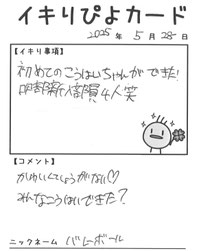 イキりぴよカード
2025年 5月 28日
【イキり事項】
初めてのこうはいちゃんができた!
4人笑
【コメント】
かわいくてしょうがない♡
みんなこうはいできた?
ニックネーム バレーボール